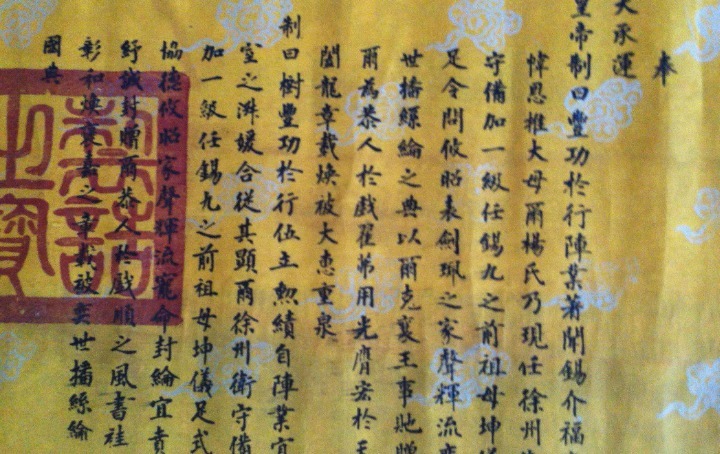 奉
天承運
皇帝制曰豐功於行陣業著聞錫介福
悼恩推大母爾楊氏乃現任徐州
守備加一級任錫九之前祖母坤
足令問攸昭表劍珮之家聲輝流
世播絲綸之典以爾克襄王事貤贈
爾為恭人於戲翟茀用光膺宏於王
闓龍章載煥被大惠重泉
制曰樹豐功於行伍主勲績自陣業宜
室之淋媛合從其顕爾徐州衛守備
加一級任錫九之前祖母坤儀足式
協德攸昭家聲輝流寵命封綸宜賁
紓誠封贈爾恭人於戲順之風書袿
彰和煥襄嘉之章載被奕世播絲綸
國典
制誥之寶